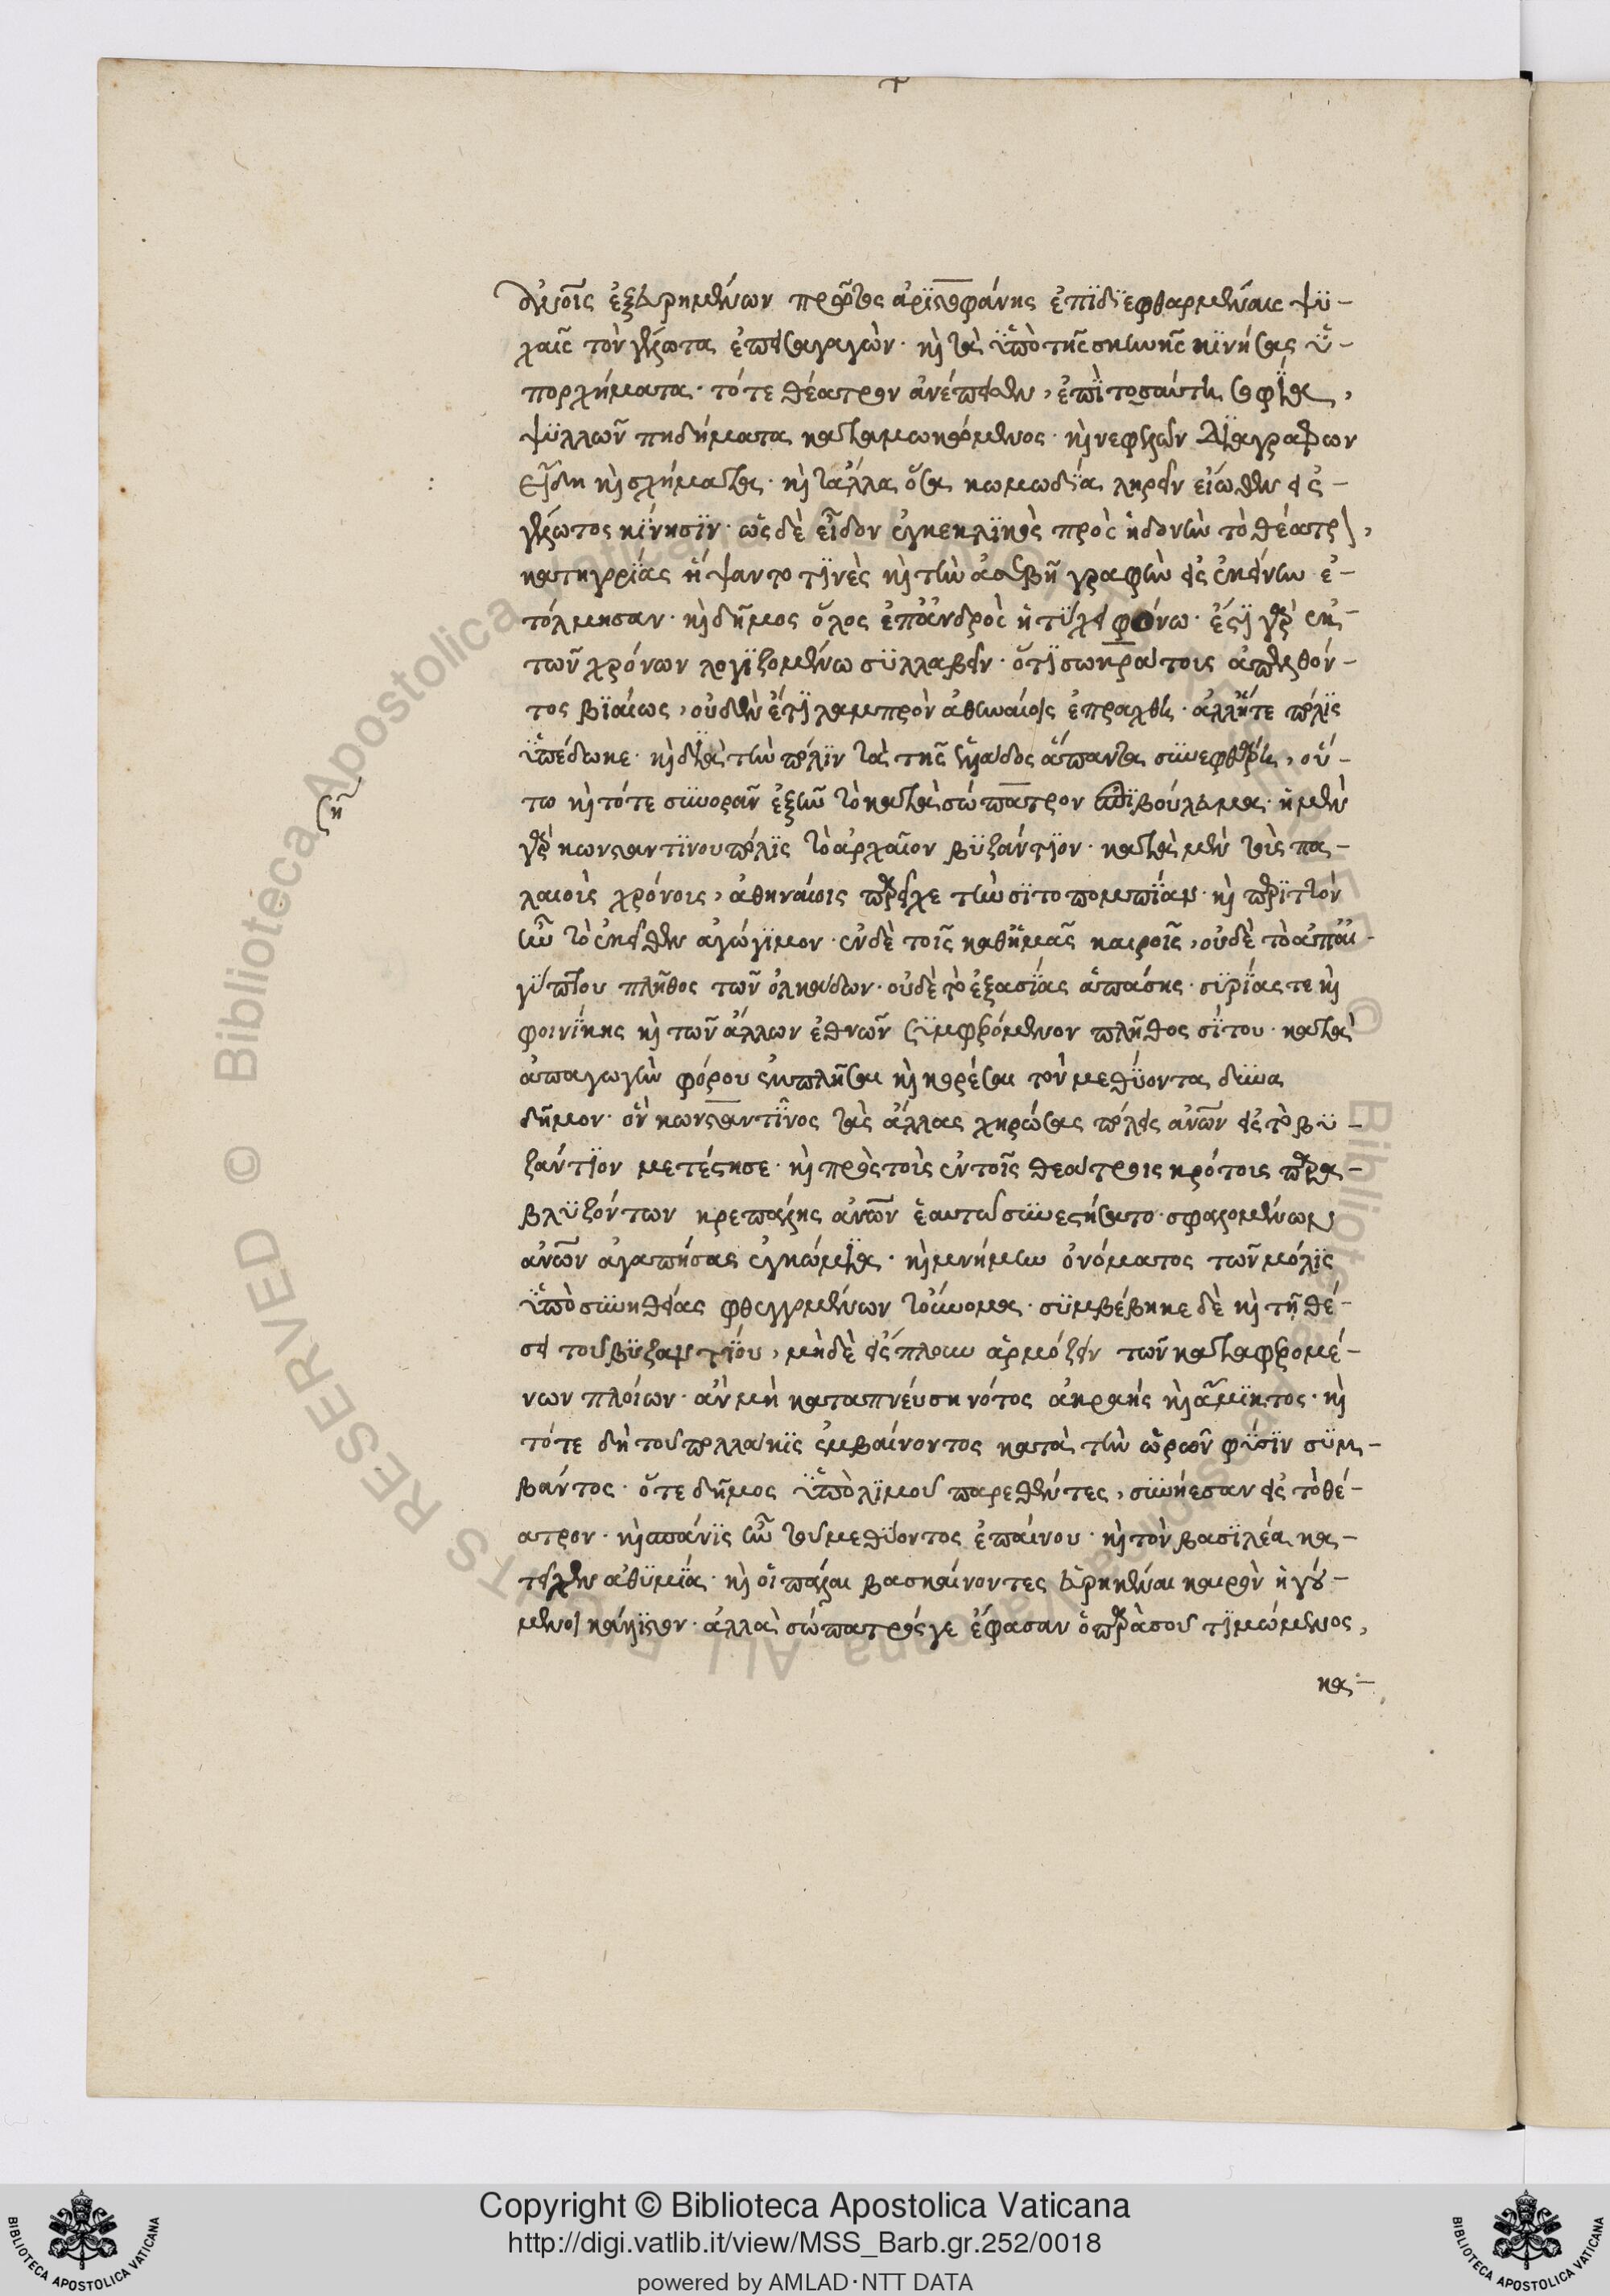 ἐξευρημένων πρῶτος ἀριστοφάνης ἐπὶ διεφθαρμέναις ψυ-
χαῖς τὸν γέλωτα ἐπεισαγαγὼν · καὶ τὰ ὑπὸ τῆς σκηνῆς κινήσας ὑ-
πορχήματα · τό τε θέατρον ἀνέπεισεν, ἐπὶ τοσαύτη σοφία,
ψυλλῶν πηδήματα καταμωκόμενος · καὶ νεφελῶν διαγράφων
εἴδη καὶ σχήματα · καὶ τἄλλα ὅσα κωμωδία ληρεῖν εἴωθεν εἰς
γέλωτος κίνησιν · ὡς δὲ εἶδον ἐγκεκλικὸς πρὸς ἡδονὴν τὸ θέατρον,
κατηγορίας ἥψαντο τινὲς καὶ τὴν ἀσεβῆ γραφὴν εἰς ἐκεῖνον ἐ-
τόλμησαν · καὶ δῆμος ὅλος ἐπ' ἀνδρὸς ἠτύχει φόνω · ἔστι γὰρ ἐκ
τῶν χρόνων λογιζομένω συλλαβεῖν · ὅτι σωκράτους ἀπελθόν-
τος βιαίως, οὐδὲν ἔτι λαμπρὸν ἀθηναίοις ἐπράχθη · ἀλλ' ἥτε πόλις
ὑπέδωκε · καὶ διὰ τὴν πόλιν τὰ τῆς ἑλλάδος ἅπαντα συνεφθάρη, οὕ-
τω καὶ τότε συνορᾶν ἐξῆν τὸ κατὰ σώπατρον ἐπιβούλευμα · ἡ μὲν
γὰρ κωνσταντινούπολις τὸ ἀρχαῖον βυζάντιον · κατὰ μὲν τοὺς πα-
λαιοὺς χρόνους, ἀθηναίοις παρεῖχε τὴν σιτοπομπίαν · καὶ περιττὸν
ἦν τὸ ἐκεῖθεν ἀγώγιμον · ἐν δὲ τοῖς καθ' ἡμᾶς καιροῖς, οὐδὲ τὸ ἀπ' αἰ-
γύπτου πλῆθος τῶν ὁλκάδων · οὐδὲ τὸ ἐξ ἀσίας ἁπάσης · συρίας τε καὶ
φοινίκης καὶ τῶν ἄλλων ἐθνῶν συμφερόμενον πλῆθος σίτου · κατὰ
ἀπαγωγὴν φόρου ἐμπλῆσαι καὶ κορέσαι τὸν μεθύοντα δύναται
δῆμον · ὃν κωνσταντῖνος τὰς ἄλλας χηρώσας πόλεις ἀνων εἰς τὸ βυ-
ζάντιον μετέστησε · καὶ πρὸς τοὺς ἐν τοῖς θεάτροις κρότους παρα-
βλυζόντων κρεπάλης ἀνων ἑαυτῶ συνεστήσατο · σφαλλομένων
ἀνων ἀγαπήσας ἐγκώμια · καὶ μνήμην ὀνόματος τῶν μόλις
ὑπὸ συνηθείας φθεγγομένων τοὔνομα · συμβέβηκε δὲ καὶ τῆ θέ-
σει τοῦ βυζαντίου, μηδὲ εἰς πλοῦν ἁρμόζειν τῶν καταφερομέ-
νων πλοίων · ἂν μὴ καταπνεύση νότος ἀκραὴς καὶ ἄμικτος · καὶ
τότε δὴ τοῦ πολλάκις συμβαίνοντος κατὰ τὴν ὡρῶν φύσιν συμ-
βάντος · ὅτε δῆμος ὑπὸ λιμοῦ παρεθέντες, συνήεσαν εἰς τὸ θέ-
ατρον · καὶ σπάνις ἦν τοῦ μεθύοντος ἐπαίνου · καὶ τὸν βασιλέα κα-
τεῖχεν ἀθυμία · καὶ οἱ πάλαι βασκαίνοντες εὑρηκέναι καιρὸν ἡγού-
μενοι κάλλιστον · ἀλλὰ σώπατρός γε ἔφασαν ὁ παρὰ σοῦ τιμώμενος,
κα-